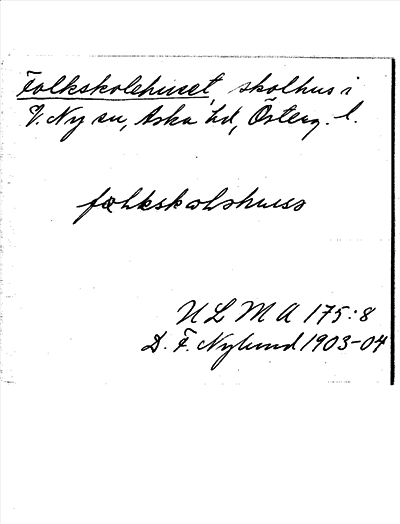 Folkskolehuset, skolhus i
V. Ny sn, Aska hd, Österg. l.
folkskolshuss
ULMA 175:8
D. F. Nylund 1903-04